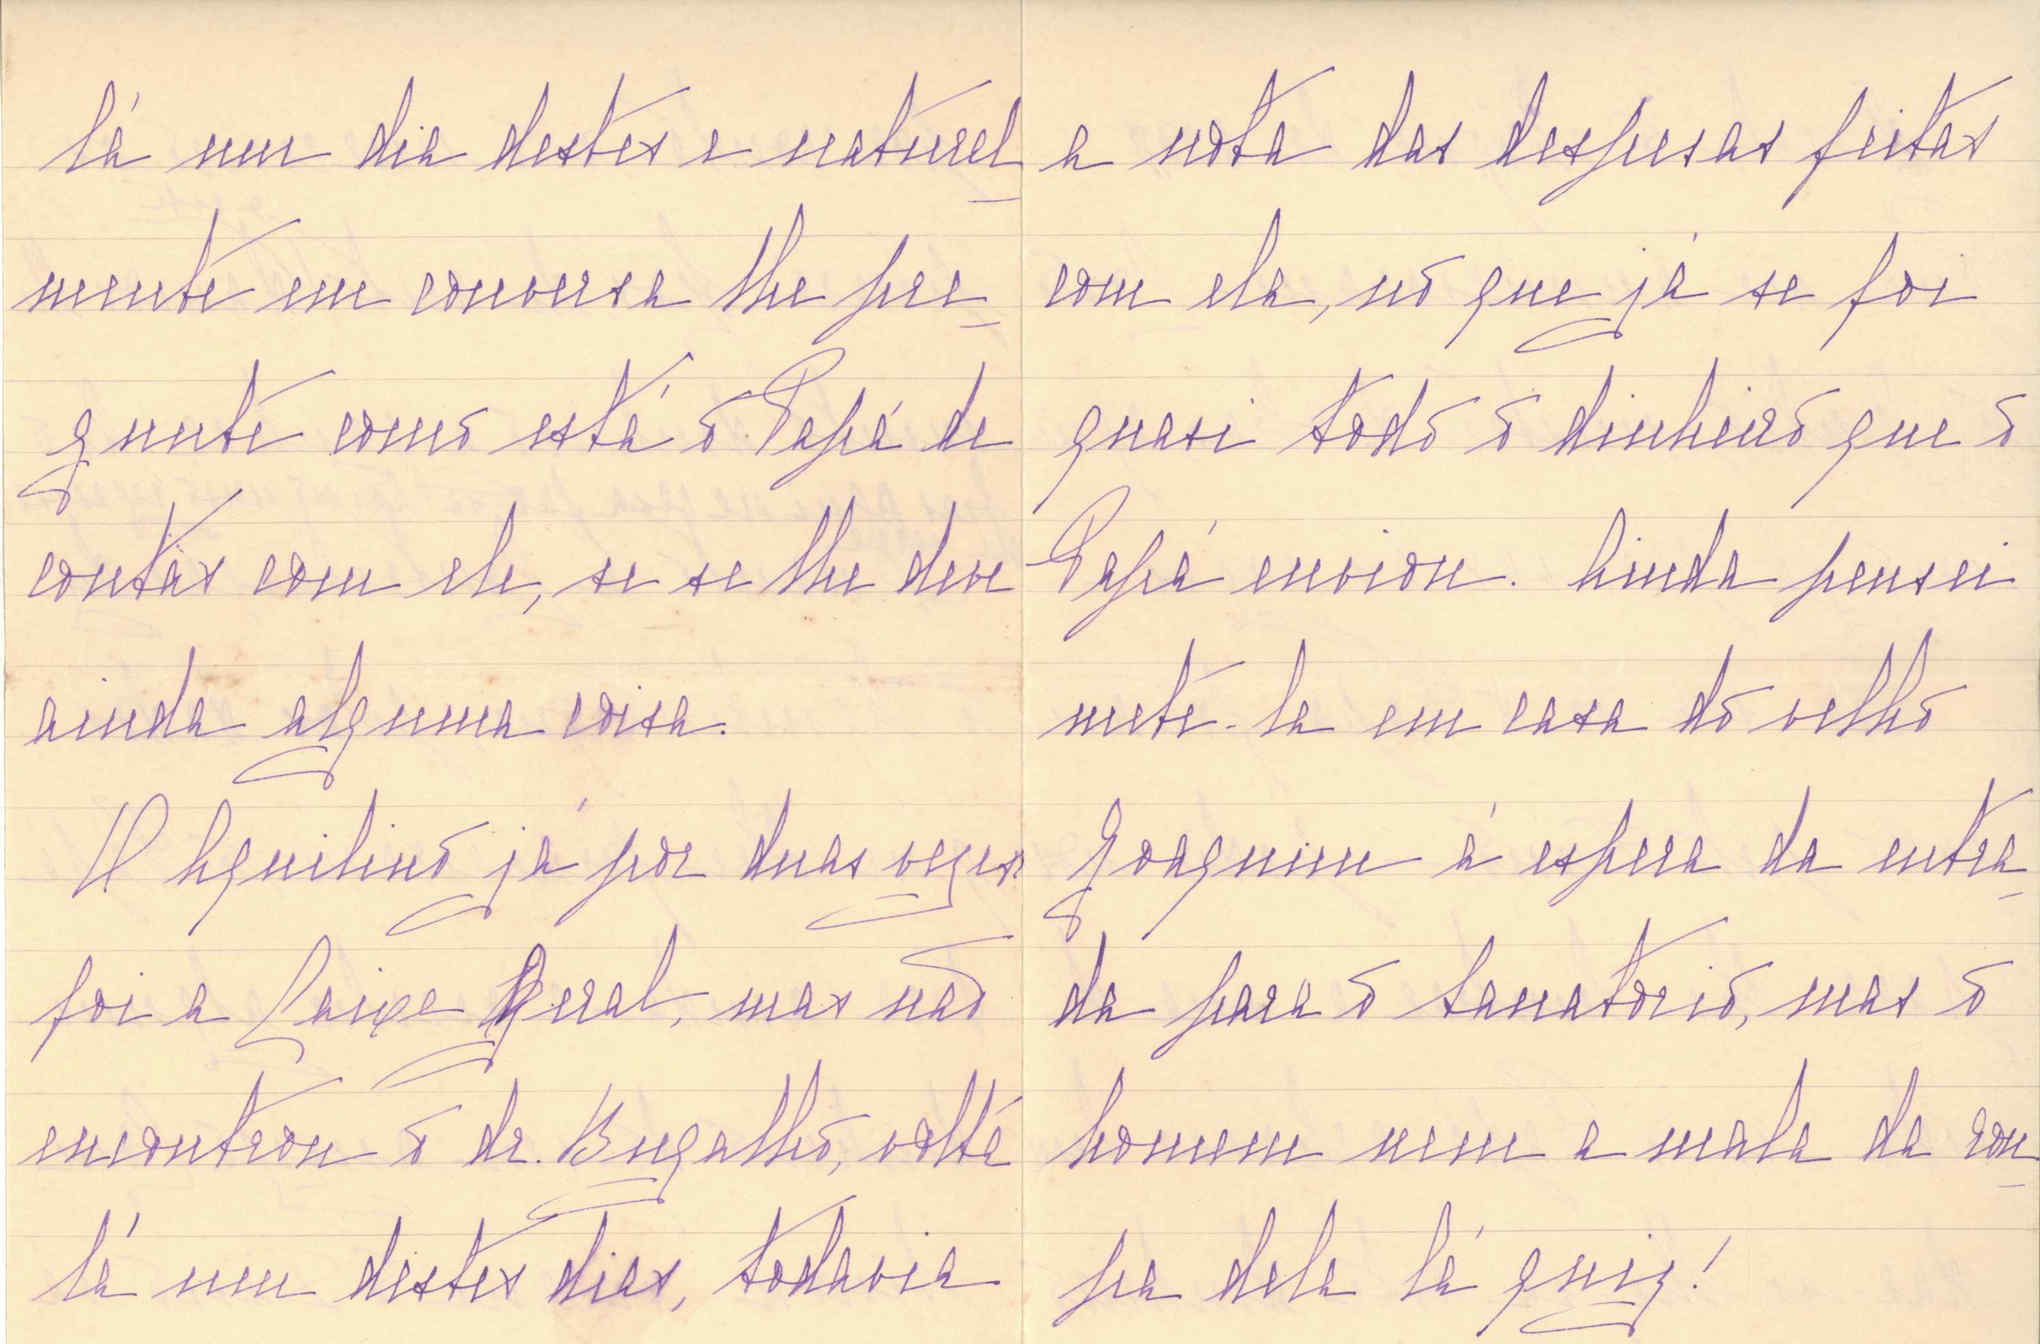 lá num dia destes e natural_
mente em conversa lhe pre_
gunte como está o Papá de
contas com ele, se se lhe deve
ainda alguma coisa.
O Aquilino já por duas vezes
foi a Caixa Geral, mas não
encontrou o dr. Bugalho, volta
lá num destes dias, todavia
a nota das despesas feitas
com ela, no que já se foi
quasi todo o dinheiro que o
Papá enviou. Ainda pensei
mete-la em casa do velho
Joaquim á espera da entra_
da para o sanatorio, mas o
homem nem a mala da rou_
pa dela lá quiz!